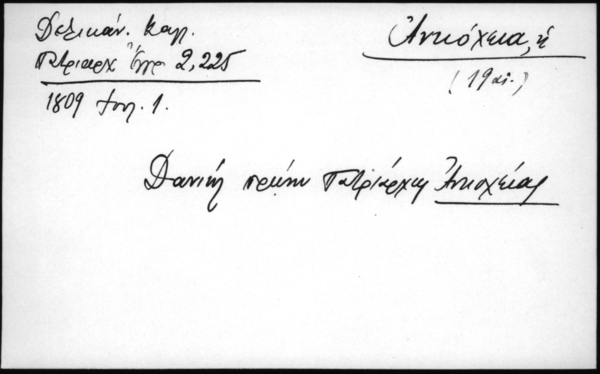 Δελικάν. Καλ.
Πατριαρχ Ἔγγρ 2,225
1809 Ἰουλ. 1.
Ἀντιόχεια, ἡ
(19 αἰ.)
Δανιὴλ πρώην Πατριάρχης Ἀντιοχείας